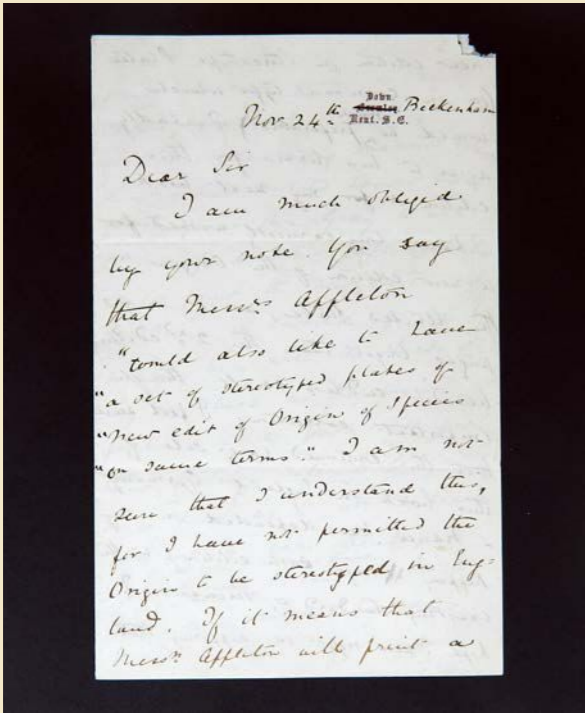 Down,
Bromley
Kent. S.E.
Nov 24th Beckenham
Dear Sir
I am much obliged
by your note. You say
that Messrs Appleton
"would also like to have
"a set of stereotyped plates of
"new edit of Origin of Species
"on same terms." I am not
sure that I understand this,
for I have not permitted the
Origin to be stereotyped in Eng-
land. If it means that
Messrs Appleton will print a